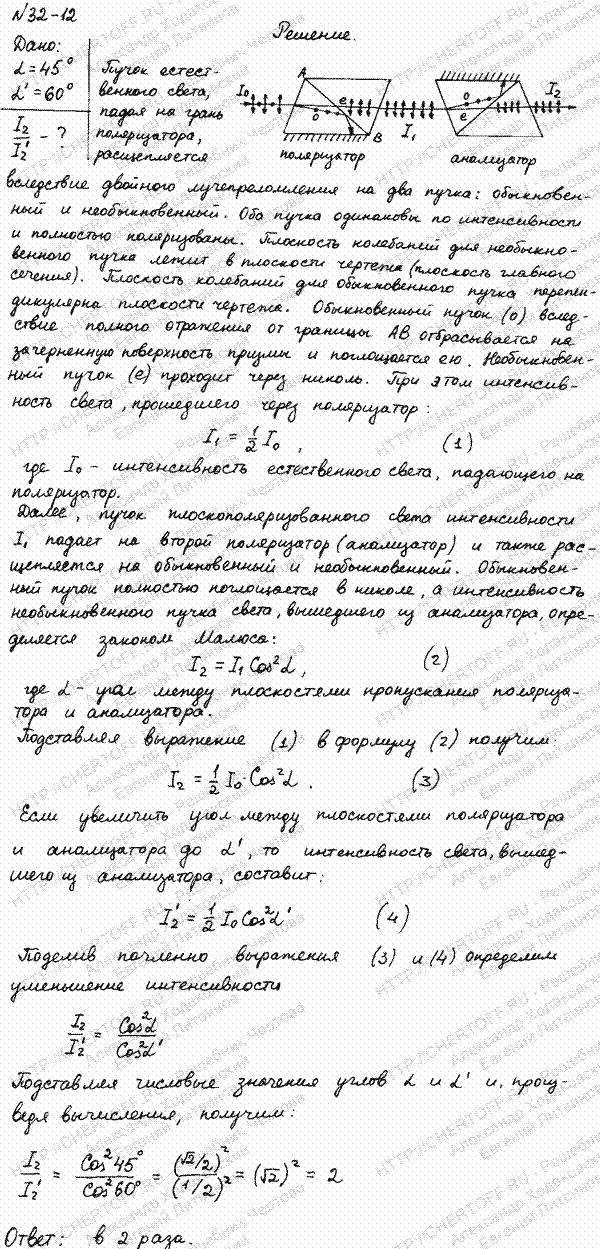 №32-12
Дано:
α=45°
α'=60°
I₂/I₂' - ?
Решение.
Пучок естест-
венного света,
падая на грань
поляризатора,
расщепляется
I₀
A
o
e
B
I₁
o
e
I₂
поляризатор
анализатор
вследствие двойного лучепреломления на два пучка: обыкновен-
ный и необыкновенный. Оба пучка одинаковы по интенсивности
и полностью поляризованы. Плоскость колебаний для необыкно-
венного пучка лежит в плоскости чертежа (плоскость главного
сечения). Плоскость колебаний для обыкновенного пучка перпен-
дикулярна плоскости чертежа. Обыкновенный пучок (o) вслед-
ствие полного отражения от границы AB отбрасывается на
зачерненную поверхность призмы и поглощается ею. Необыкновен-
ный пучок (e) проходит через николь. При этом интенсив-
ность света, прошедшего через поляризатор:
I₁ = 1/2 I₀ , (1)
где I₀ - интенсивность естественного света, падающего на
поляризатор.
Далее, пучок плоскополяризованного света интенсивности
I₁ падает на второй поляризатор (анализатор) и также рас-
щепляется на обыкновенный и необыкновенный. Обыкновен-
ный пучок полностью поглощается в николе, а интенсивность
необыкновенного пучка света, вышедшего из анализатора, опре-
деляется законом Малюса:
I₂ = I₁ Cos²α , (2)
где α - угол между плоскостями пропускания поляриза-
тора и анализатора.
Подставляя выражение (1) в формулу (2) получим:
I₂ = 1/2 I₀·Cos²α . (3)
Если увеличить угол между плоскостями поляризатора
и анализатора до α', то интенсивность света, вышед-
шего из анализатора, составит:
I₂' = 1/2 I₀ Cos²α' (4)
Поделив почленно выражения (3) и (4) определим
уменьшение интенсивности
I₂/I₂' = Cos²α/Cos²α'
Подставляя числовые значения углов α и α' и, произ-
ведя вычисления, получим:
I₂/I₂' = Cos²45°/Cos²60° = (√2/2)²/(1/2)² = (√2)² = 2
Ответ: в 2 раза.
HTTP://CHERTOFF.RU - Решебник Чертова
Александр Ходаковский
Евгений Литвинов